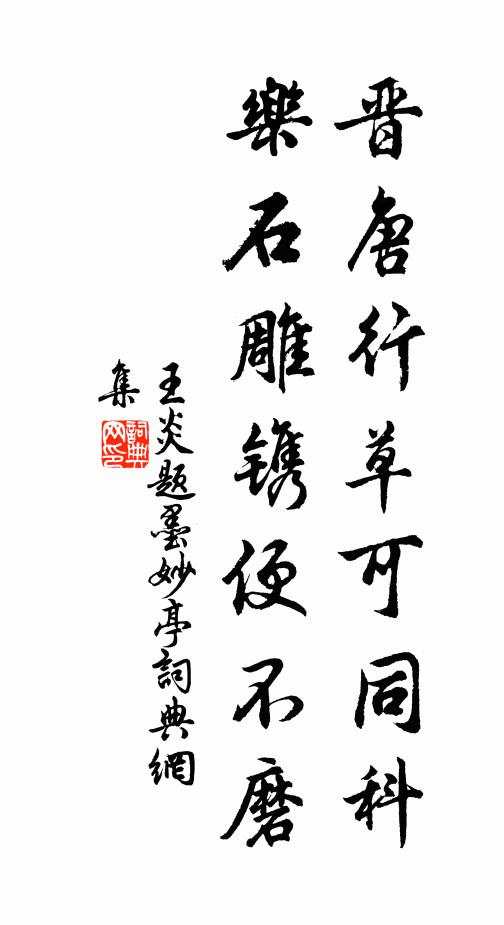 晋唐行草可同科
樂石雕镌便不磨
王炎題墨妙亭詞典網
集
詞典
网印